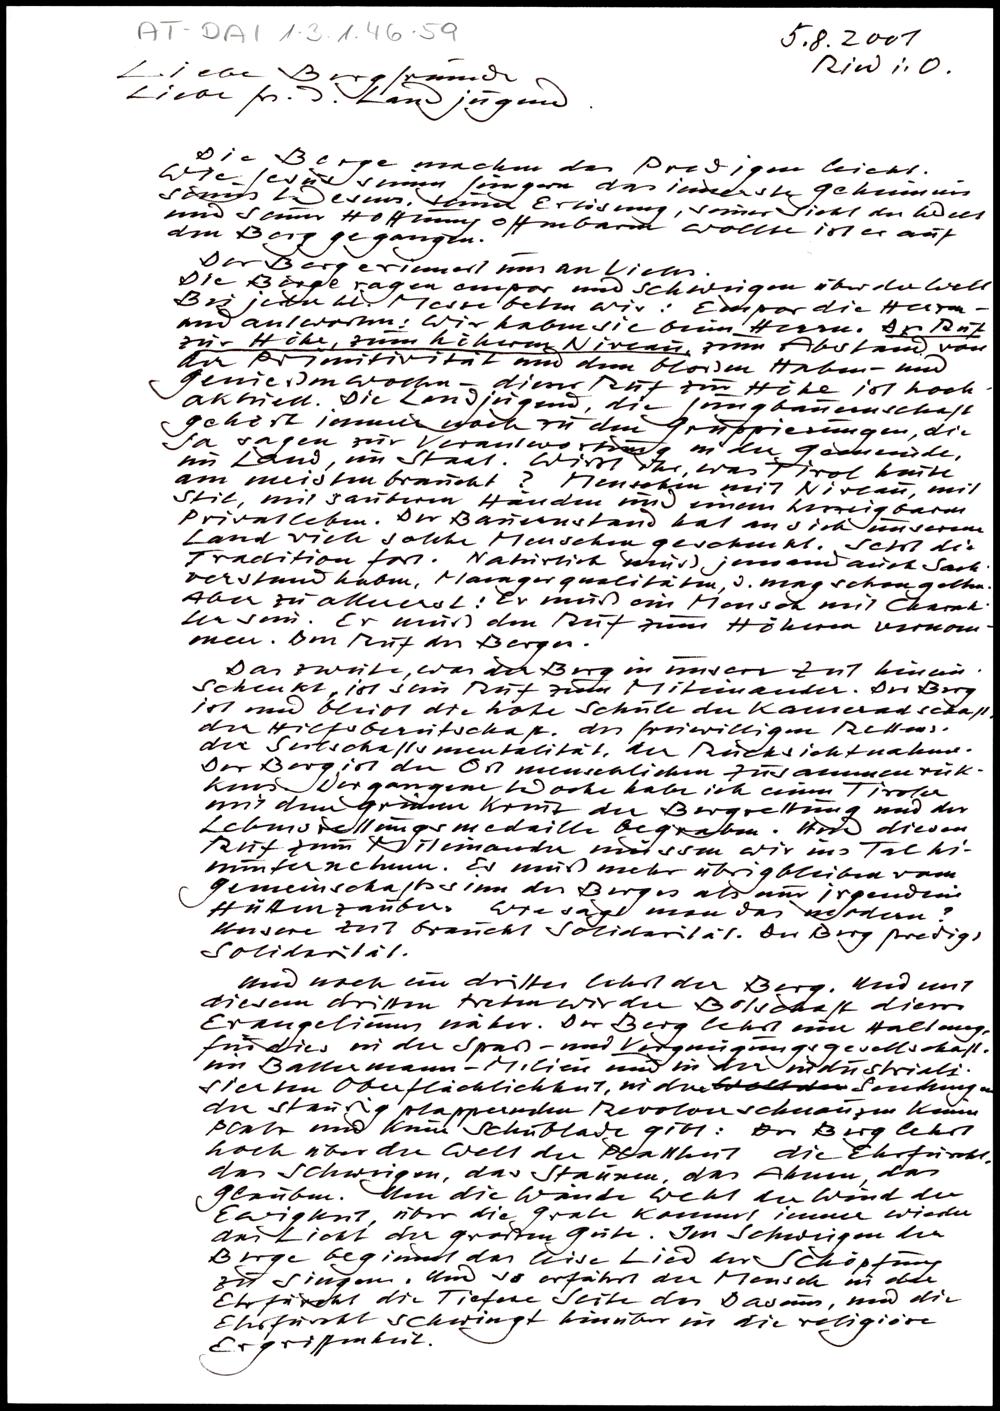 AT-DAI 1.3.1.46.59
5.8.2001
Ried i. O.
Liebe Bergfreunde
Liebe Landjugend.
Die Berge machen das Predigen leicht.
Wie Jesus seinen Jüngern das innerste Geheimnis
seines Wesens, seine Erlösung, seiner Sicht der Welt
und seiner Hoffnung offenbaren wollte ist er auf
den Berg gegangen.
Der Berg erinnert uns an Vieles.
Die Berge ragen empor und schweigen über der Welt
Bei jeder hl. Messe beten wir: Empor die Herzen -
und antworten: Wir haben sie beim Herrn. Der Ruf
zur Höhe, zum höheren Niveau, zum Abstand von
der Primitivität und dem bloßen Haben- und
Genießenwollen - dieser Ruf zur Höhe ist hoch-
aktuell. Die Landjugend, die Jungbauernschaft
gehört immer noch zu den Gruppierungen, die
Ja sagen zur Verantwortung in der Gemeinde,
im Land, im Staat. Wißt ihr, was Tirol heute
am meisten braucht? Menschen mit Niveau, mit
Stil, mit sauberen Händen und einem herzeigbaren
Privatleben. Der Bauernstand hat an sich unserem
Land viele solche Menschen geschenkt. Setzt die
Tradition fort. Natürlich muß jemand auch Sach-
verstand haben, Managerqualitäten, d. mag schon gelten.
Aber zu allererst: Er muß ein Mensch mit Charak-
ter sein. Er muß den Ruf zum Höheren vernom-
men. Den Ruf der Berge.
Das zweite, was der Berg in unsere Zeit hinein-
schenkt, ist sein Ruf zum Miteinander. Der Berg
ist und bleibt die hohe Schule der Kameradschaft,
der Hilfsbereitschaft, des freiwilligen Rettens,
der Seilschaftsmentalität, der Rücksichtnahme.
Der Berg ist der Ort menschlichen Zusammenrük-
kens. Vergangene Woche habe ich einen Tiroler
mit dem grünen Kreuz der Bergrettung und der
Lebensrettungsmedaille begraben. Und diesen
Ruf zum Miteinander müssen wir ins Tal hi-
nunternehmen. Es muß mehr übrigbleiben vom
Gemeinschaftssinn des Berges als nur irgendein
Hüttenzauber. Wie sagt man das modern?
Unsere Zeit braucht Solidarität. Der Berg predigt
Solidarität.
Und noch ein drittes lehrt der Berg. Und mit
diesem dritten treten wir der Botschaft dieses
Evangeliums näher. Der Berg lehrt eine Haltung,
für die es in der Spaß- und Vergnügungsgesellschaft,
im Ballermann-Milieu und in der industriali-
sierten Oberflächlichkeit, in den Sendungen
der ständig plappernden Revolverschnauzen keinen
Platz und keine Schublade gibt: Der Berg lehrt
hoch über der Welt der Plattheit die Ehrfurcht,
das Schweigen, das Staunen, das Ahnen, das
Glauben. Um die Wände weht der Wind der
Ewigkeit, über die Grate kommt immer wieder
das Licht der großen Güte. Im Schweigen der
Berge beginnt das leise Lied der Schöpfung
zu singen. Und so erfährt der Mensch in der
Ehrfurcht die Tiefere Seite des Daseins, und die
Ehrfurcht schwingt hinüber in die religiöse
Ergriffenheit.